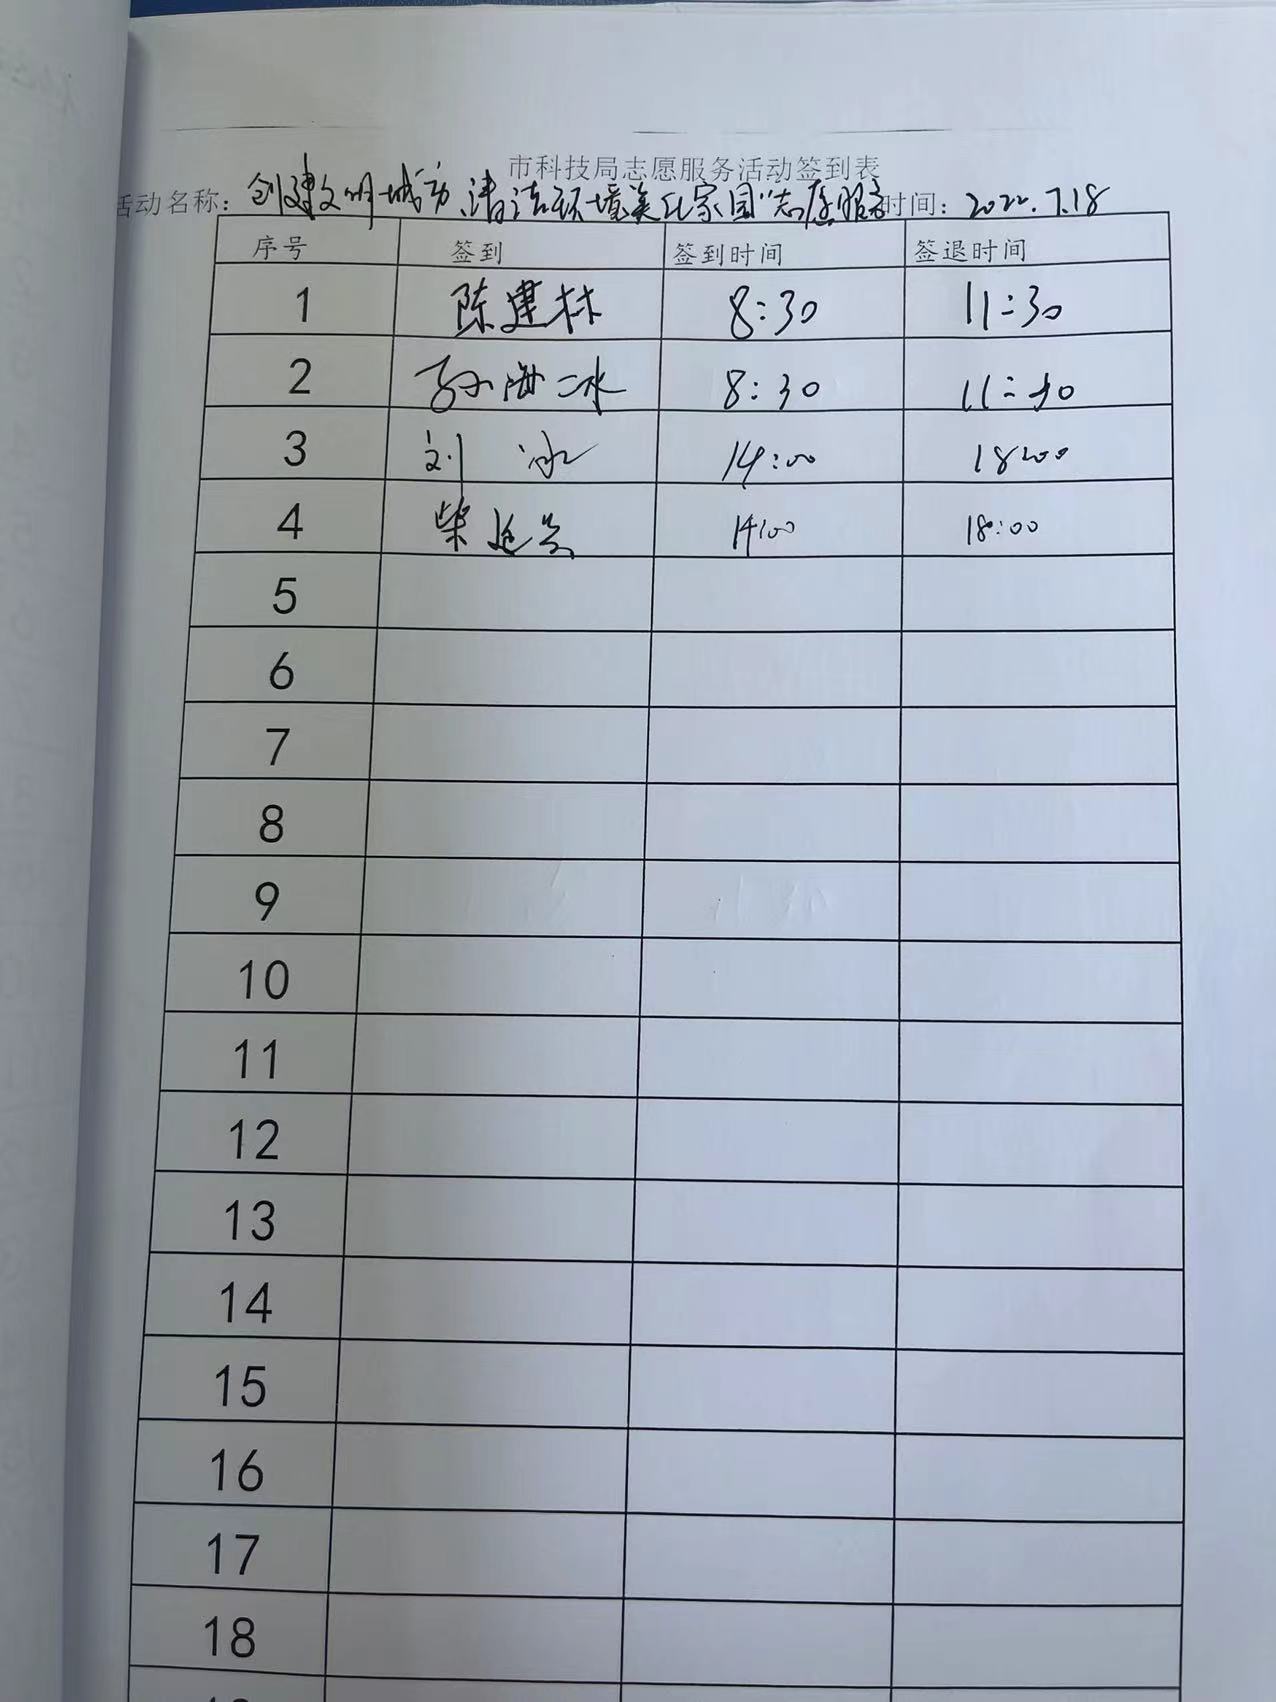 市科技局志愿服务活动签到表
活动名称：创建文明城市、清洁环境美化家园"志愿服务 时间：2022.7.18
序号 签到 签到时间 签退时间
1 陈建林 8:30 11:30
2 孙海冰 8:30 11:30
3 刘冰 14:00 18:00
4 柴 14:00 18:00
5
6
7
8
9
10
11
12
13
14
15
16
17
18